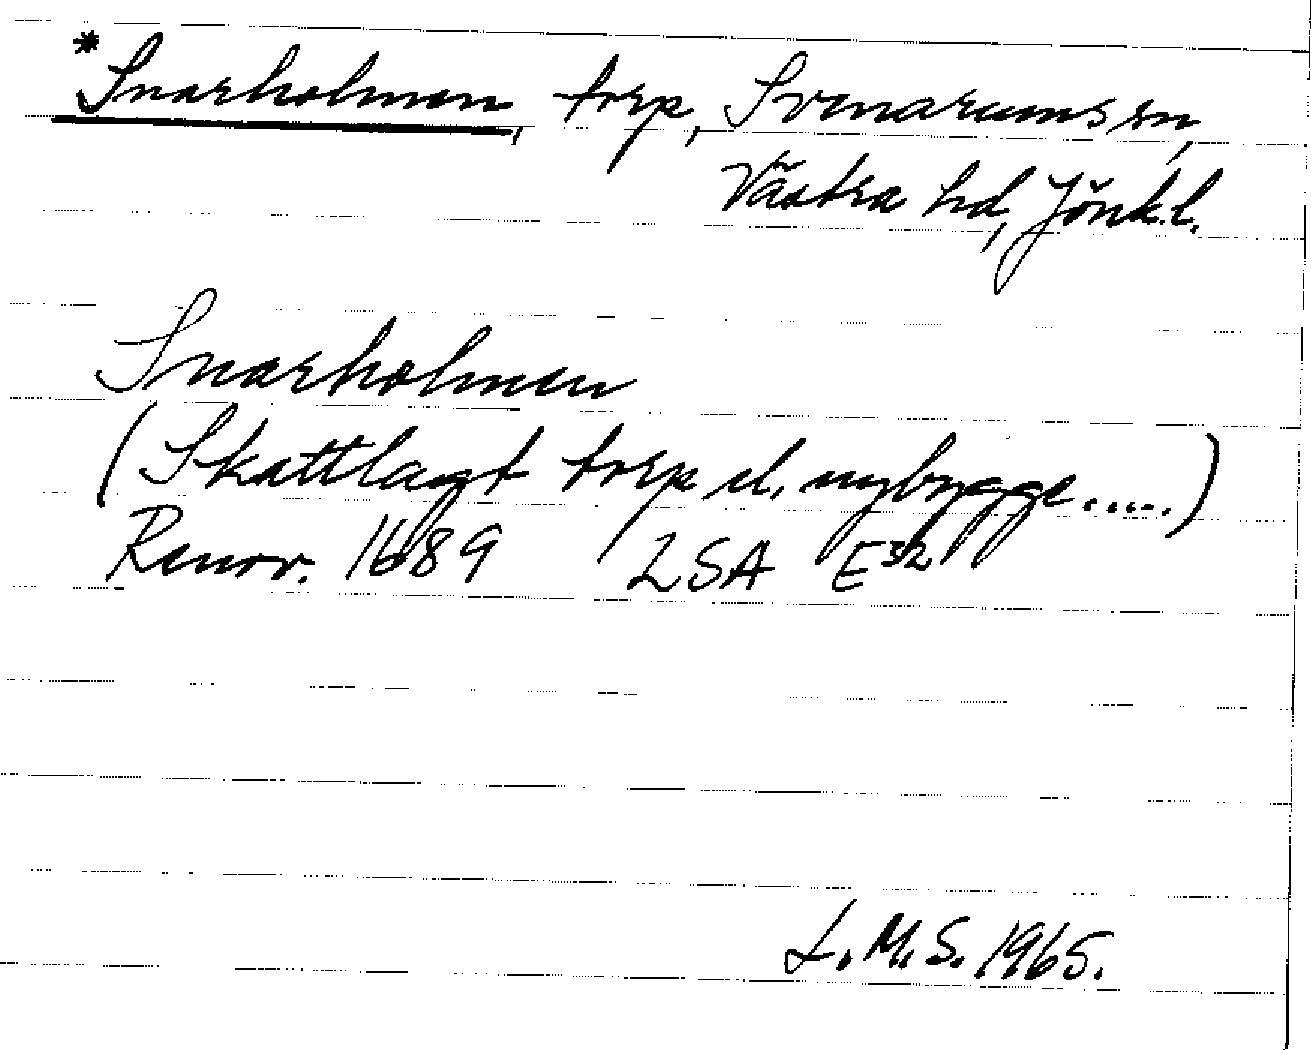 *Snarholmen, torp, Svenarums sn,
Västra hd, Jönk.l.
Snarholmen
(Skattlagt torp el. nybygge.....)
Renov. 1689 LSA E32
L.M.S. 1965.